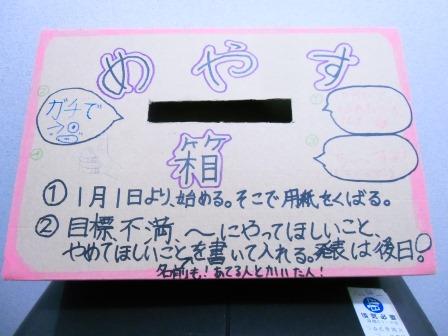 めやす
箱
ガチで
① 1月1日より、始める。そこで用紙をくばる。
② 目標、不満、〜にやってほしいこと、
やめてほしいことを書いて入れる。発表は後日!
名前も!あてる人とかいた人!
換気必要